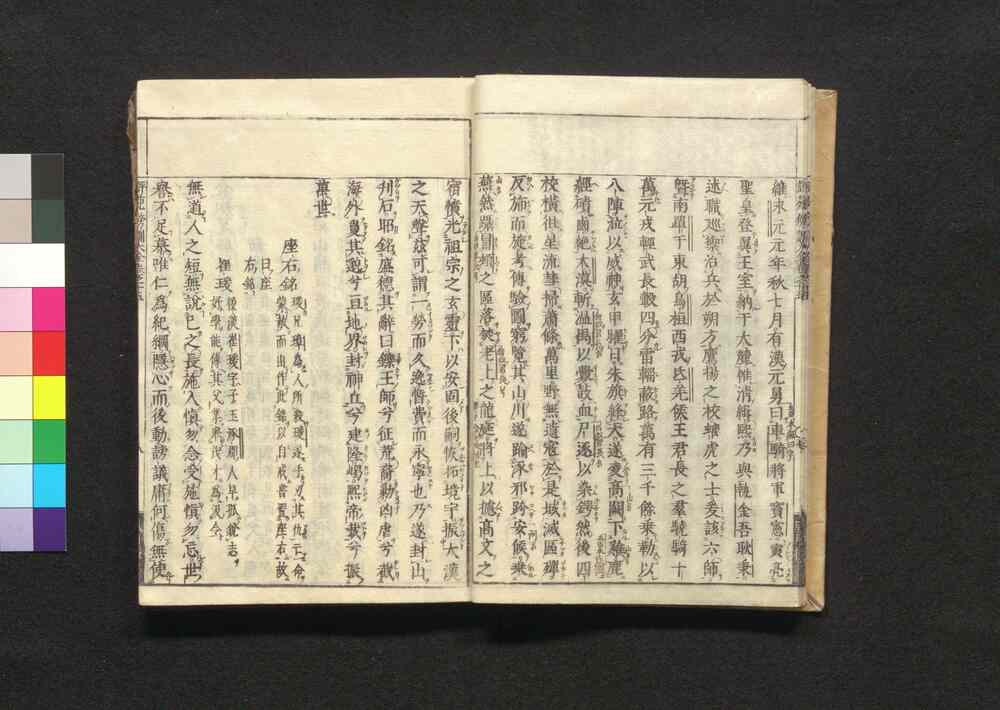 維永元元年秋七月有漢元舅曰車騎將軍竇憲寅亮
聖皇登翼王室納于大麓惟清緝熙乃與執金吾耿秉
述職巡禦治兵於朔方鷹揚之校螭虎之士爰該六師
曁南單于東胡烏桓西戎氐羌侯王君長之羣驍騎十
萬元戎輕武長轂四分雷輜蔽路萬有三千餘乗勒以
八陣涖以威神玄甲耀日朱旗絳天遂凌高闕下雞鹿
經磧鹵絶大漠斬温禺以釁鼓血尸逐以染鍔然後四
校橫徂星流彗掃蕭條萬里野無遺寇於是域滅區殫
反斾而旋考傳驗圖窮覽其山川遂踰涿邪跨安候乗
燕然躡冒頓之區落焚老上之龍庭將上以攄高文之
宿憤光祖宗之玄靈下以安固後嗣恢拓境宇振大漢
之天聲兹可謂一勞而久逸暫費而永寧也乃遂封山
刋石昭銘盛德其辭曰鑠王師兮征荒裔勦凶虐兮截
海外夐其邈兮亘地界封神丘兮建隆嵑熙帝載兮振
萬世
座右銘
瑗兄璋爲人所殺瑗遂手刃其仇亡命
蒙赦而出作此銘以自戒嘗置座右故
曰座
右銘
崔瑗
後漢崔瑗字子玉涿郡人早孤鋭志
好學能傳其父業舉茂才爲汲令
無道人之短無說己之長施人慎勿念受施慎勿忘世
譽不足慕唯仁爲紀綱隱心而後動謗議庸何傷無使